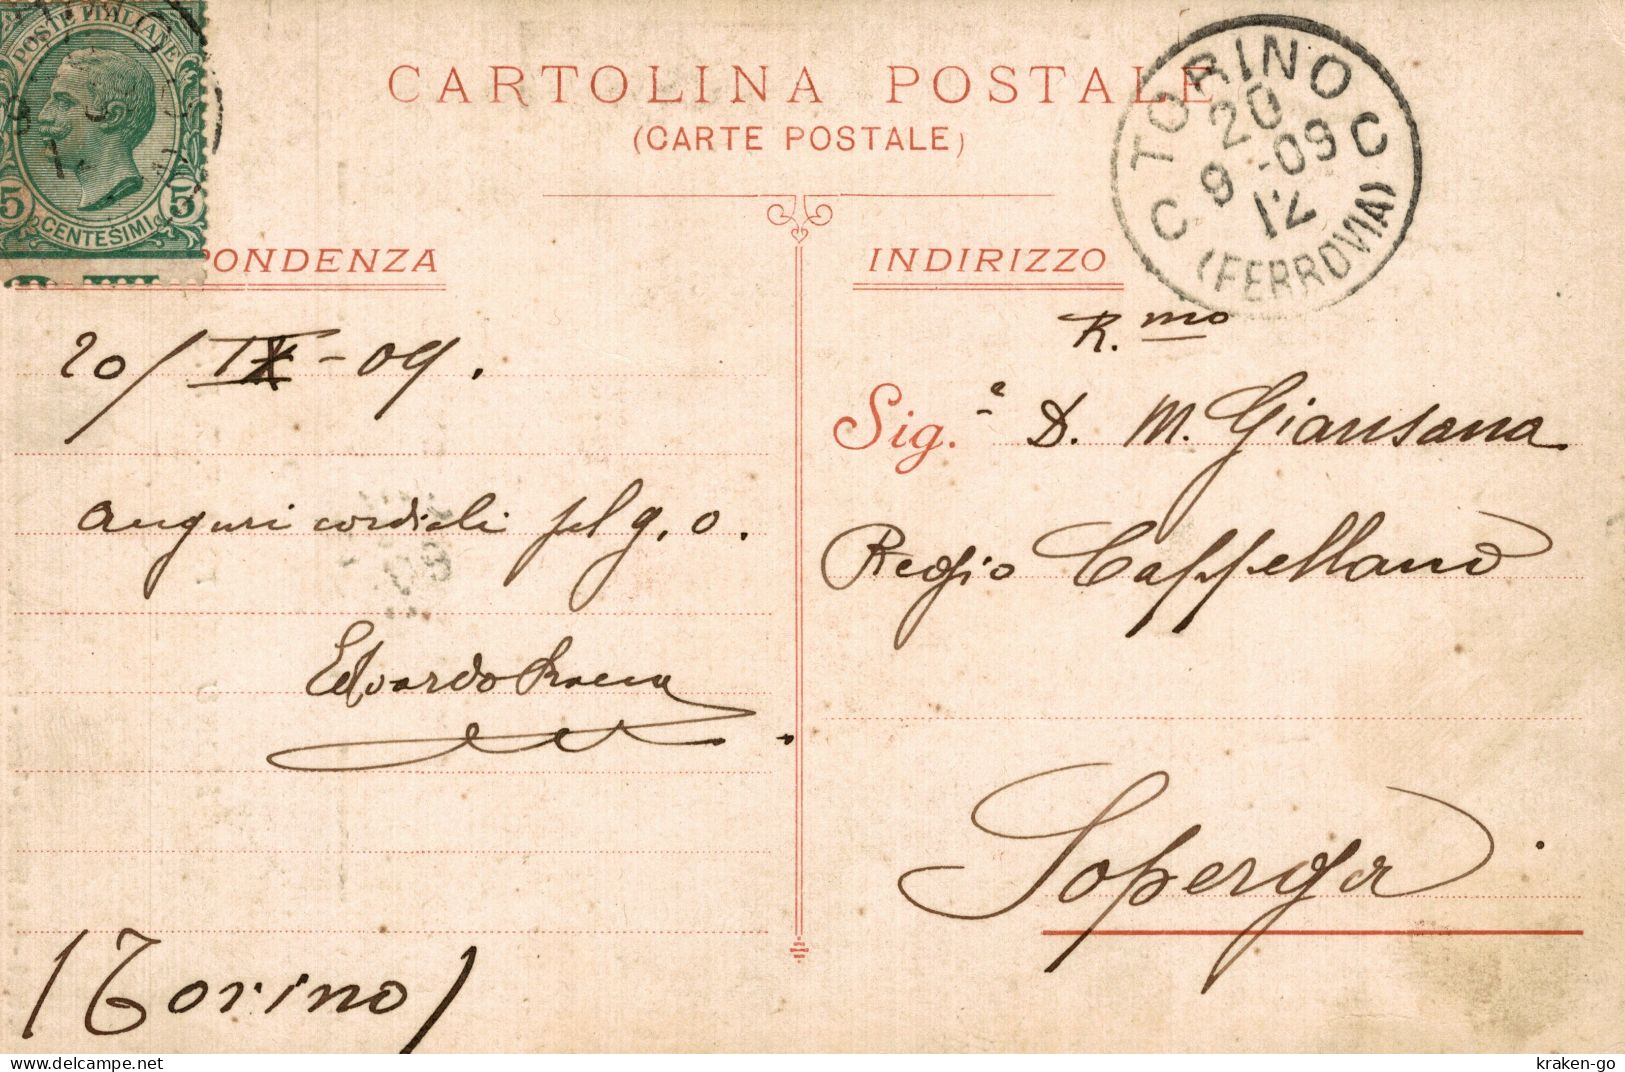 POSTE ITALIANE
5 CENTESIMI 5
CARTOLINA POSTALE
(CARTE POSTALE)
TORINO
20
9 -09
12
C C
(FERROVIA)
PONDENZA
20/IX-09.
auguri cordiali pel g. o.
Edoardo
(Torino)
INDIRIZZO
R.mo
Sig.e D. M. Giansana
Regio Cappellano
Soperga.
kraken-go